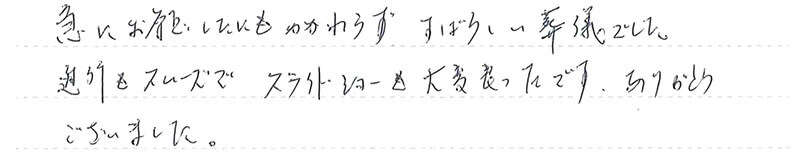 急にお願いしたにもかかわらず すばらしい葬儀でした。
進行もスムーズで スライドショーも大変良ったです。ありがとう
ございました。